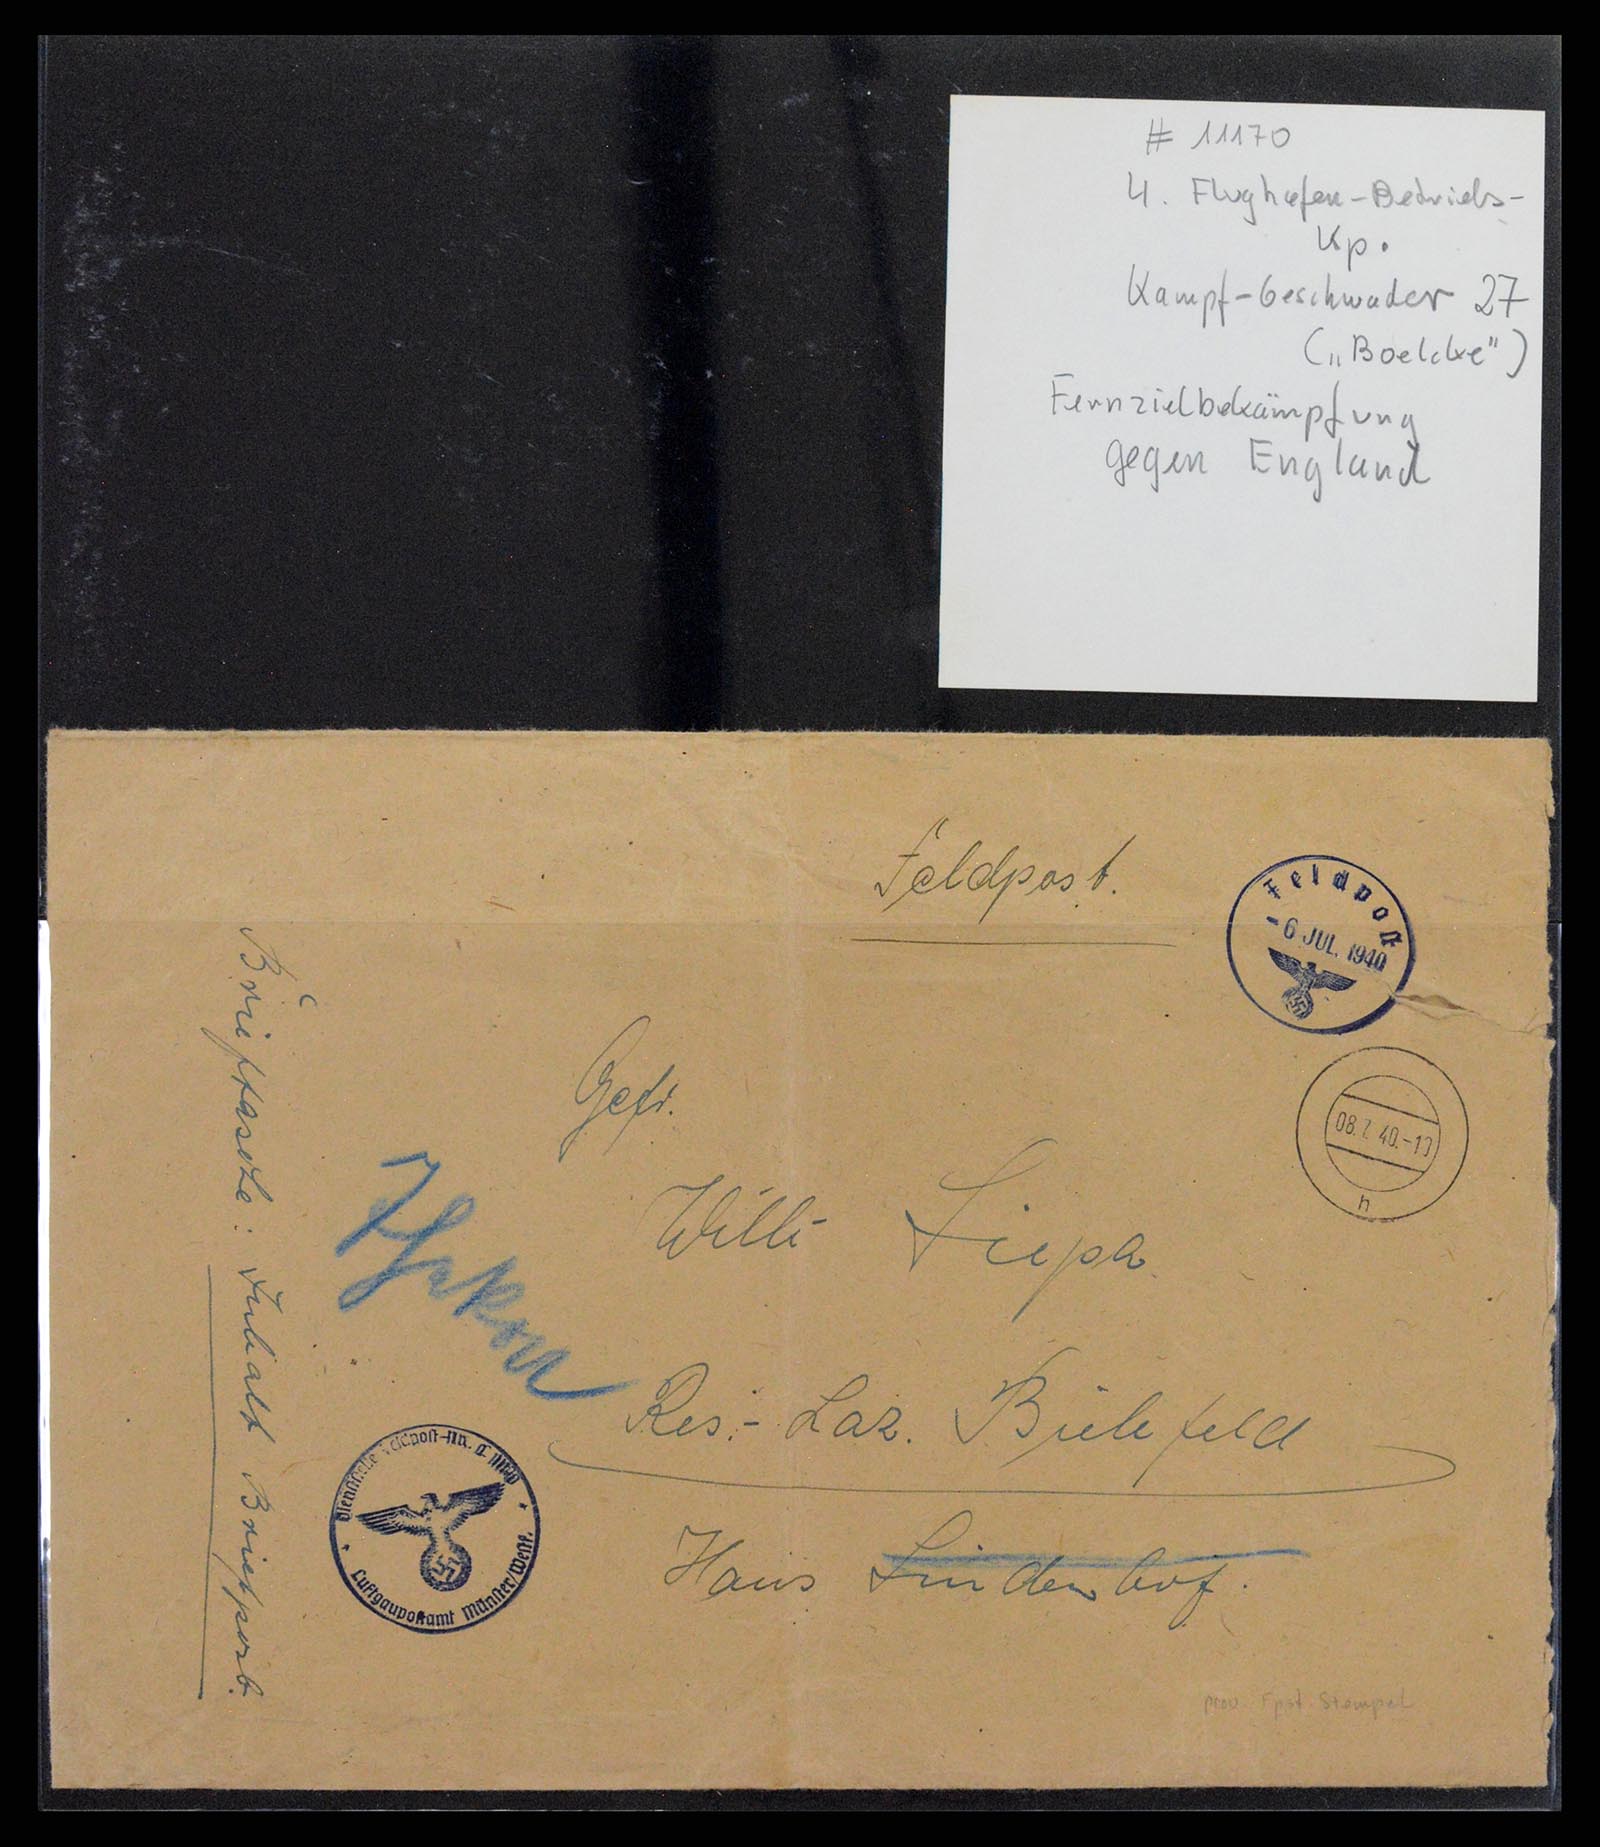 # 11170
4. Flughafen-Betriebs-
Kp.
Kampf-Geschwader 27
(„Boelcke")
Fernzielbekämpfung
gegen England
Feldpost.
Feldpost
- 6 JUL. 1940
08.7.40.-10
h
Gefr.
Willi
Res.- Laz. Bielefeld
Haus Lindenhof.
Brieftasche: Inhalt Briefpost.
Dienststelle Feldpost-Nr.
Luftgaupostamt Münster/Westf.
prov. Fpst. Stempel